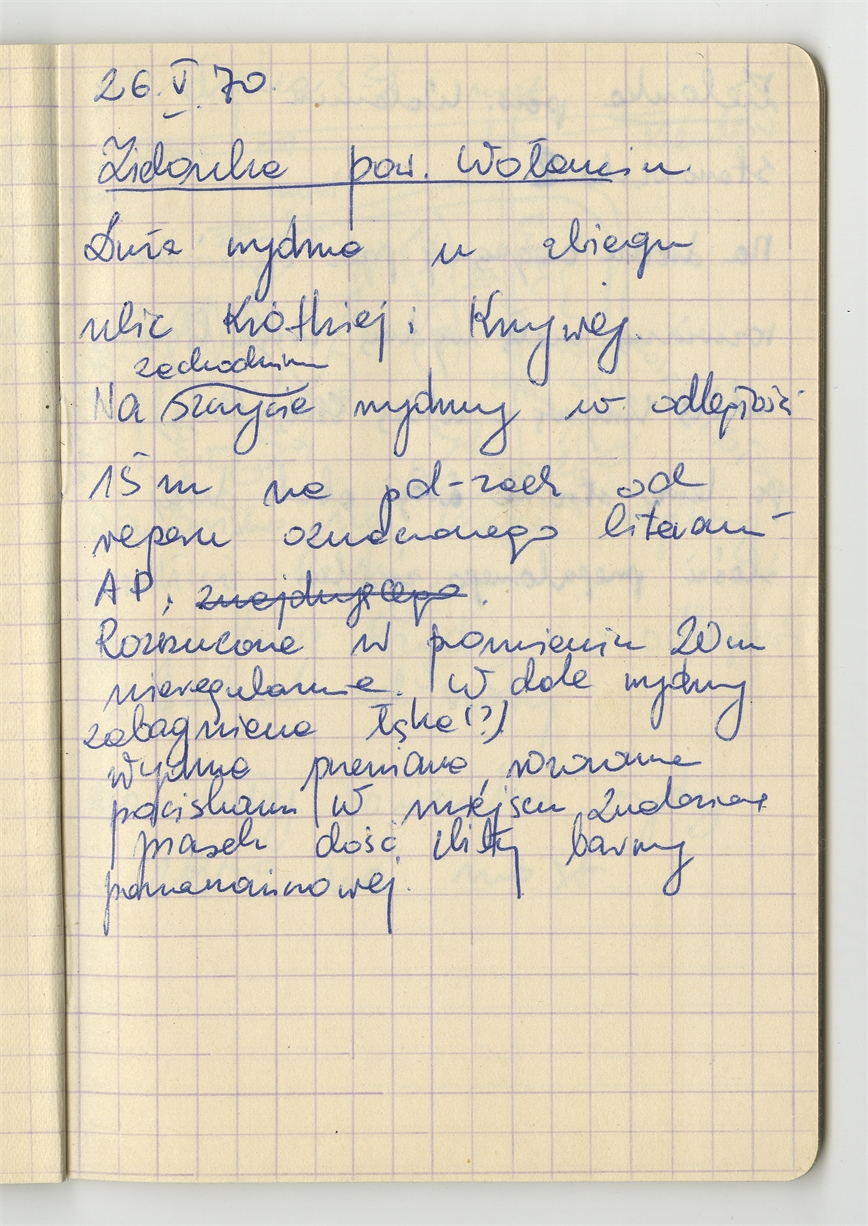 26.V.70.
Zielonka pow. Wołomin
Duża wydma u zbiegu
ulic Krótkiej i Krzywej.
zachodnim
Na szczycie wydmy w odległości
15 m na pd-zach od
reperu oznaczonego literami
AP, znajdującego
Rozrzucone w promieniu 20m
nieregularnie. W dole wydmy
zabagniona łąka(?)
Wydma przeciana, rozorana
pociskami W miejscu znalezisk
piasek dość żółty barwy
pomarańczowej.